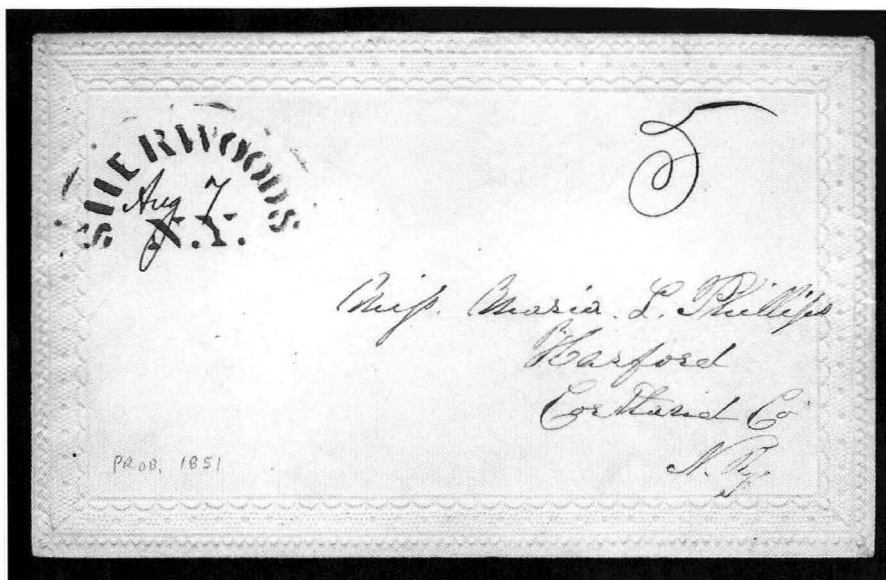 SHERWOODS
Aug 7
N.Y.
5
Miss. Maria. L. Phillips
Harford
Cortland Co
N. Y
PROB. 1851